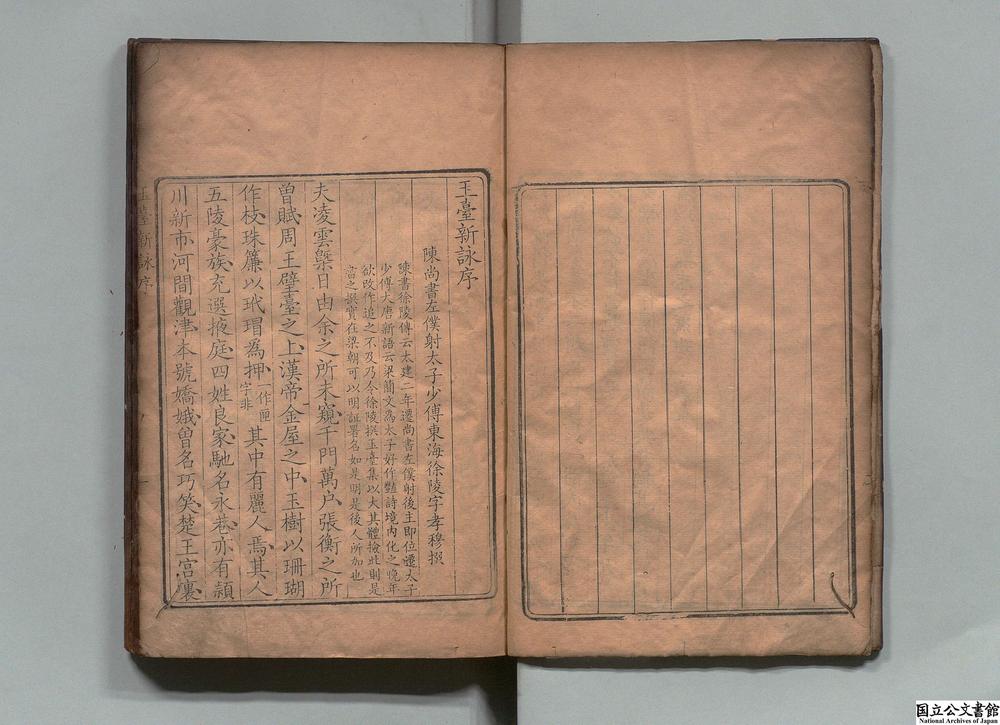 玉臺新詠序
陳尚書左僕射太子少傅東海徐陵字孝穆撰
陳書徐陵傳云太建二年遷尚書左僕射後主即位遷太子
少傅大唐新語云梁簡文為太子好作豔詩境內化之晚年
欲改作追之不及乃令徐陵撰玉臺集以大其體撿此則是
書之譔實在梁朝可以明証署名如是明是後人所加也
夫凌雲槩日由余之所未窺千門萬户張衡之所
曾賦周王璧臺之上漢帝金屋之中玉樹以珊瑚
作枝珠簾以玳瑁為押一作匣字非其中有麗人焉其人
五陵豪族充選掖庭四姓良家馳名永巷亦有潁
川新市河間觀津本號嬌娥曾名巧笑楚王宮裏
玉臺新詠序
国立公文書館
National Archives of Japan